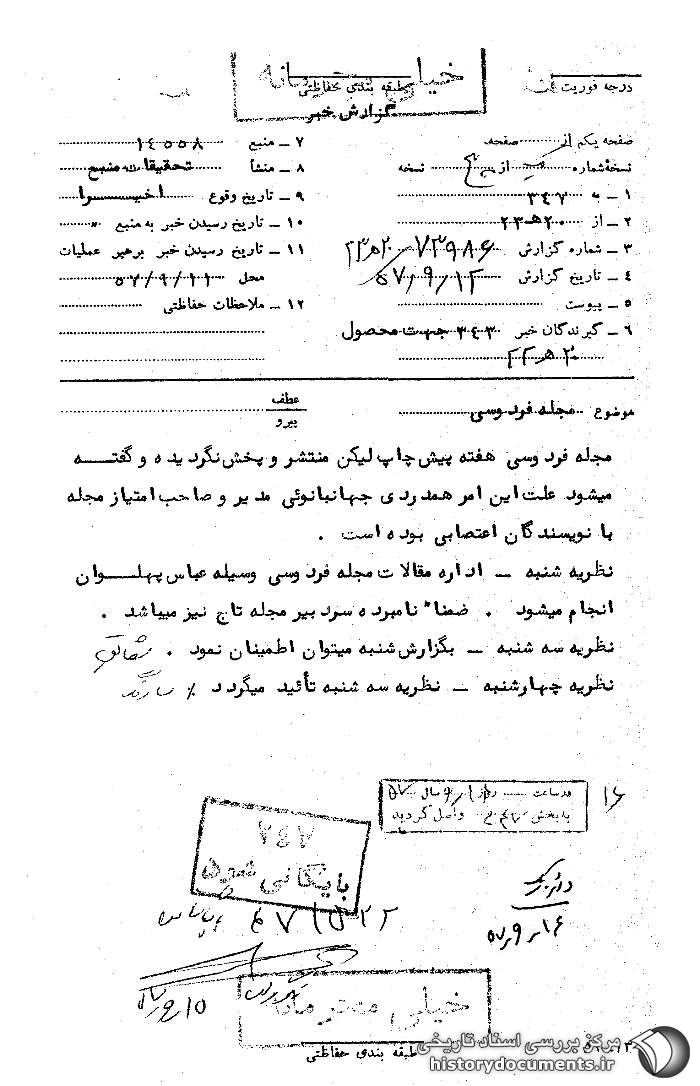 خیلی محرمانه
درجه فوریت
طبقه بندی حفاظتی
گزارش خبر
صفحه یکم از صفحه
نسخهٔ شماره از نسخه
۱ ـ به ۳۴۷
۲ ـ از ۲۰ هـ ۲۳
۳ ـ شماره گزارش
۴ ـ تاریخ گزارش ۵۷/۹/۱۲
۵ ـ پیوست
۶ ـ گیرندگان خبر ۳۴۳ جهت محصول
۲۰ هـ ۲۲
۷ ـ منبع ۱۴۵۵۸
۸ ـ منشأ تحقیقات منبع
۹ ـ تاریخ وقوع اخیرا
۱۰ ـ تاریخ رسیدن خبر به منبع "
۱۱ ـ تاریخ رسیدن خبر برهبر عملیات
محل ۵۷/۹/۱۱
۱۲ ـ ملاحظات حفاظتی
موضوع مجله فردوسی
عطف
پیرو
مجله فردوسی هفته پیش چاپ لیکن منتشر و پخش نگردیده و گفته
میشود علت این امر همدردی جهانبانوئی مدیر و صاحب امتیاز مجله
با نویسندگان اعتصابی بوده است .
نظریه شنبه ـ اداره مقالات مجله فردوسی وسیله عباس پهلوان
انجام میشود . ضمناً نامبرده سردبیر مجله تاج نیز میباشد .
نظریه سه شنبه ـ بگزارش شنبه میتوان اطمینان نمود . شقائق
نظریه چهارشنبه ـ نظریه سه شنبه تأئید میگردد ٪
۱۶
در ساعت روز سال ۵۷
به بخش واصل گردید
۳۴۷
بایگانی شود
۵۷/۹/۱۶
۵۷/۹/۱۵
خیلی محرمانه
طبقه بندی حفاظتی
مرکز بررسی اسناد تاریخی
historydocuments.ir